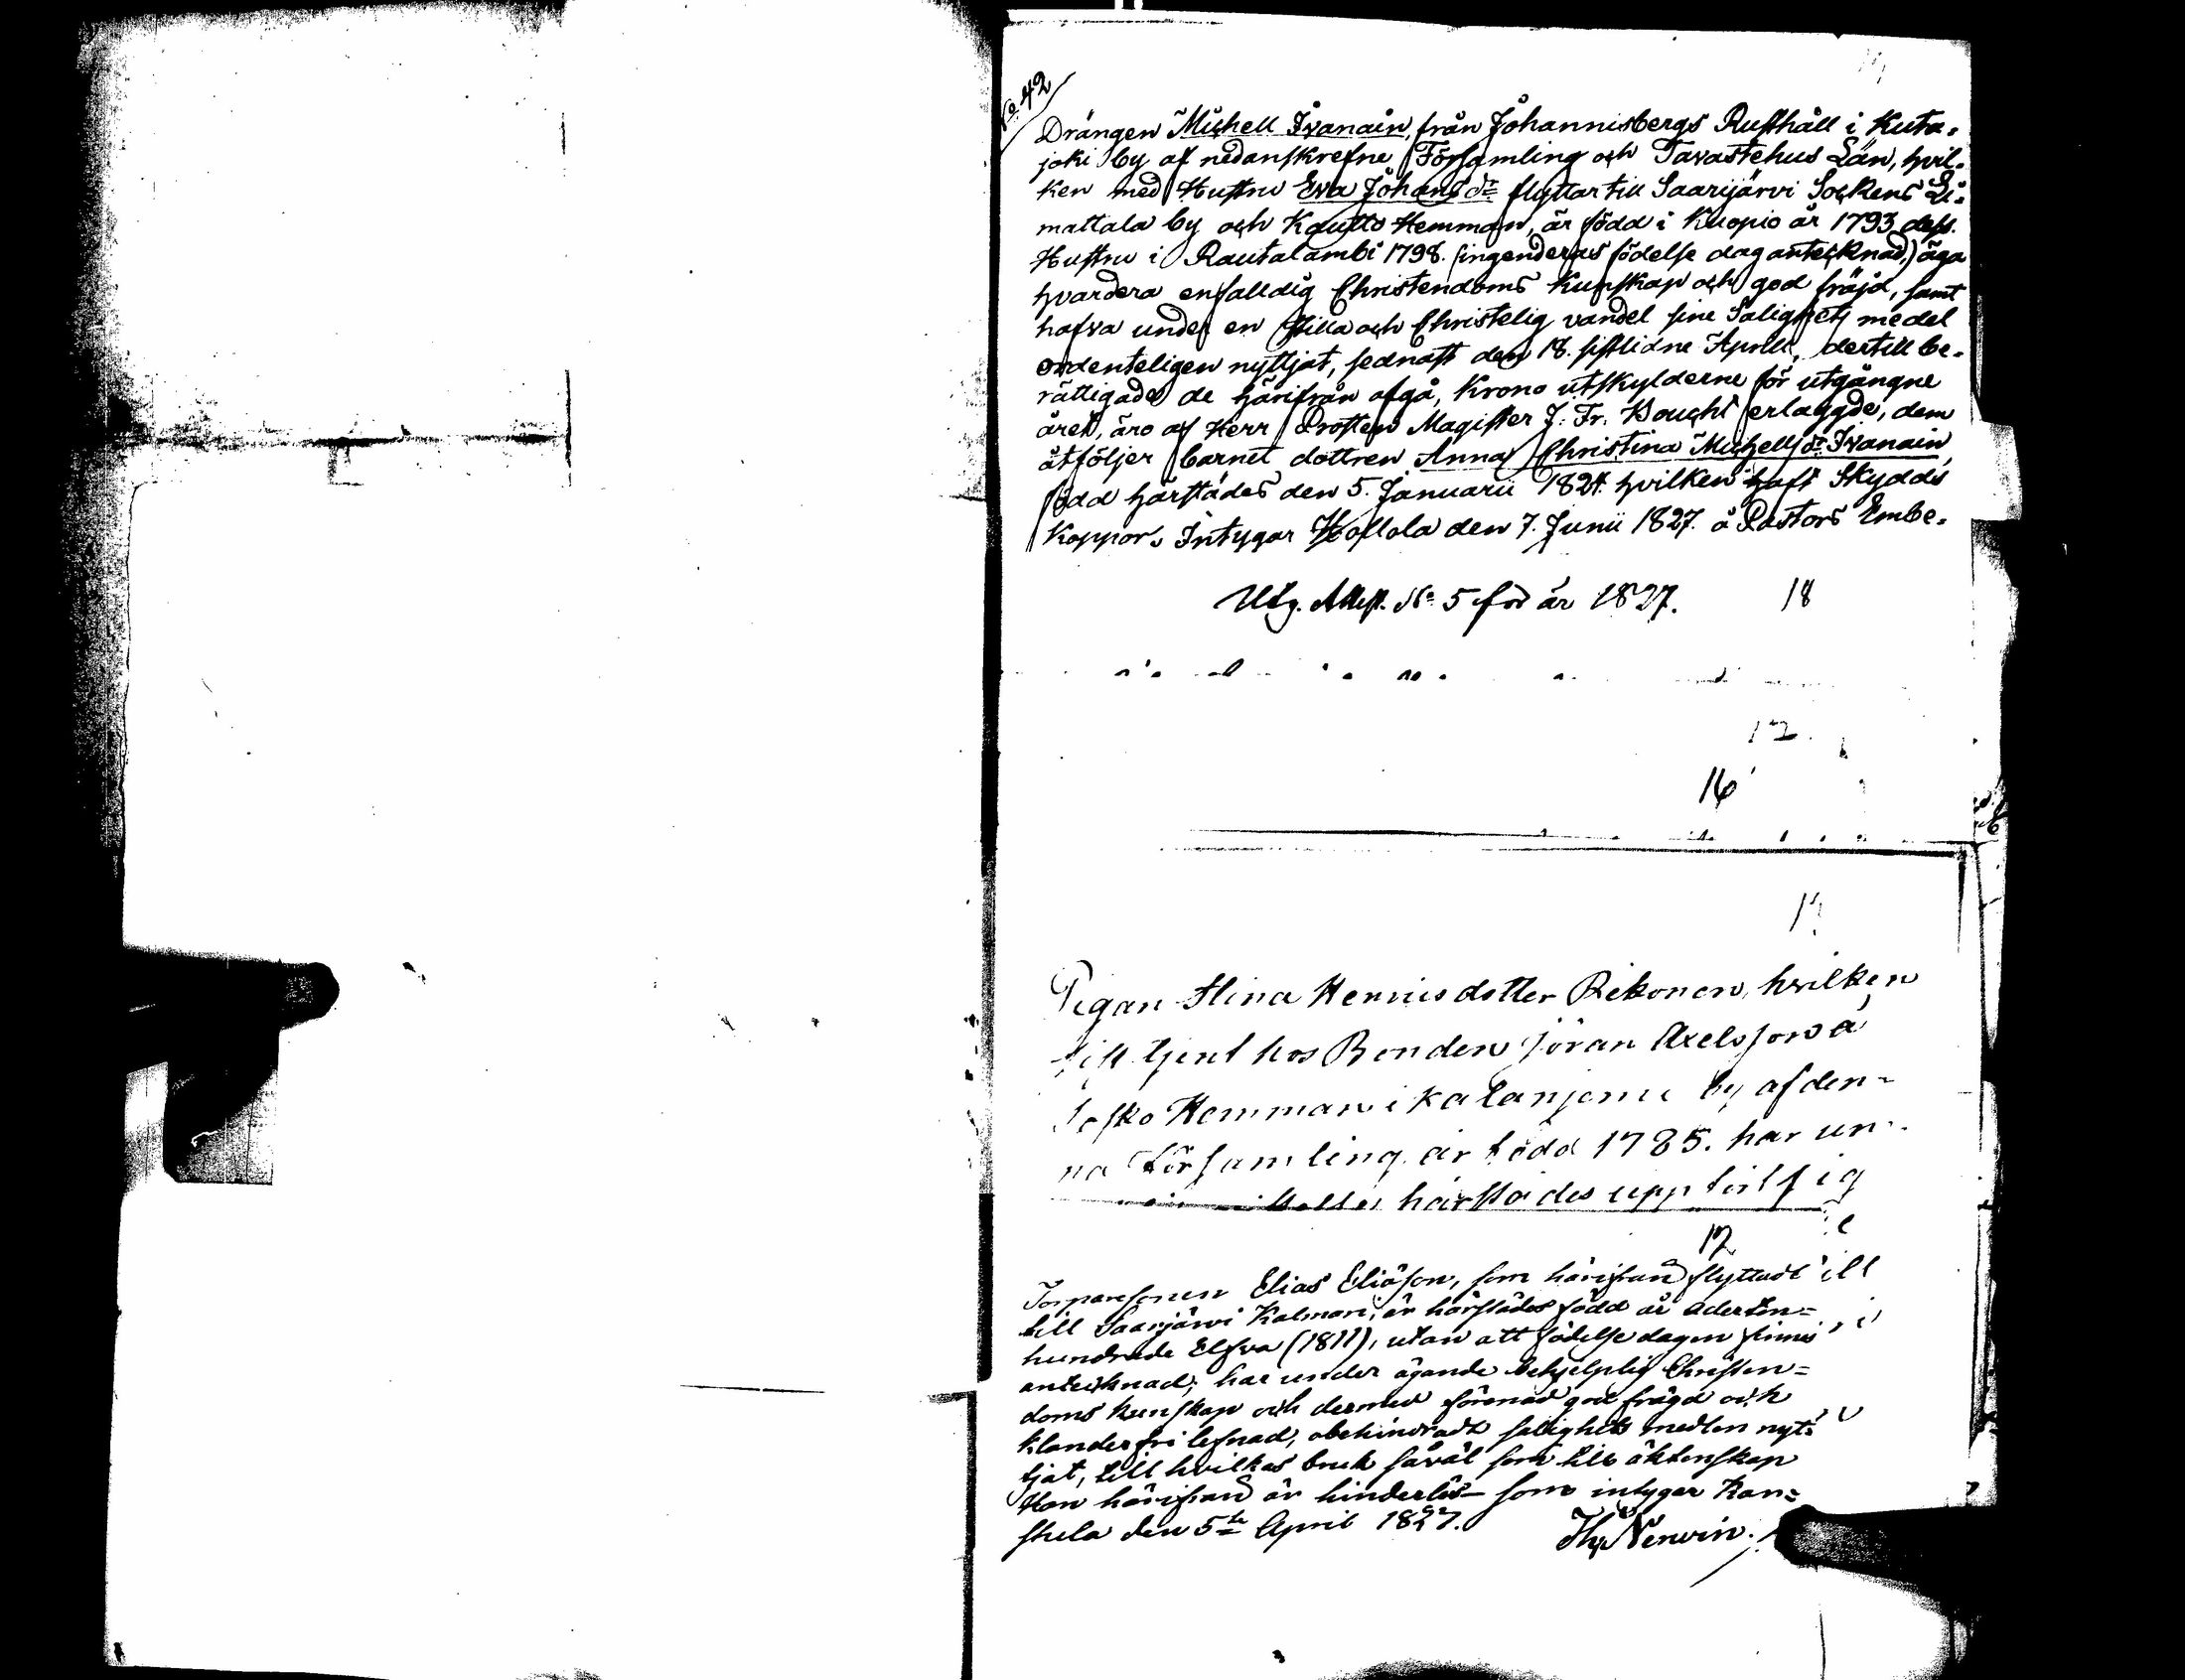 No 42
Drängen Michell Ivanain, från Johannisbergs Rusthåll i Kuta-
joki by af nedanskrefne Församling och Tavastehus Län, hvil-
ken med Hustru Eva Johansdr flyttar till Saarijärvi Sockens Li-
mattala by och Kautto Hemman, är född i Kuopio år 1793, dess
Hustru i Rautalambi 1798. (ingenderas födelse dag antecknad,) äga
hvardera enfalldig Christendoms Kunskap och god fräjd, samt
hafva under en stilla och Christelig vandel sine Salighets medel
ordenteligen nyttjat, sednast den 18. sistlidne April, dertill be-
rättigade de härifrån afgå, Krono utskylderne för utgångne
året, äro af Herr Prosten Magister J. Fr. Boucht erlaggde, dem
åtföljer barnet dottren Anna Christina Michellsdr Ivanain,
född härstädes den 5. Januarii 1824. hvilken haft Skydds
Koppor. Intygar Hollola den 7. Junii 1827. å Pastors Embe-
Utg. Attest. No 5 för år 1827.
18
12.
16
Pigan Stina Henricsdotter Rekonen, hvilken
sist tjent hos Bonden Jöran Axelsson å
Hemman i Kalanjemi by af den-
na Församling, är född 1785. har un-
härstädes uppfört sig
17
Torparesonen Elias Eliäson, som härifrån flyttadt
till Saarijärvi Kalmari, är härstädes född år aderton-
hundrade Elfva (1811), utan att födelse dagen finns
antecknad; har under ägande behjelplig Christen-
doms kunskap och dermed förenad god frägd och
klanderfri lefnad, obehindradt salighets medlen nyt-
tjat, till hvilkas bruk såväl som till äktenskap
Han härifrån är hinderlös som intygar Kan-
stula den 5te April 1827.
Th. Nerwin.